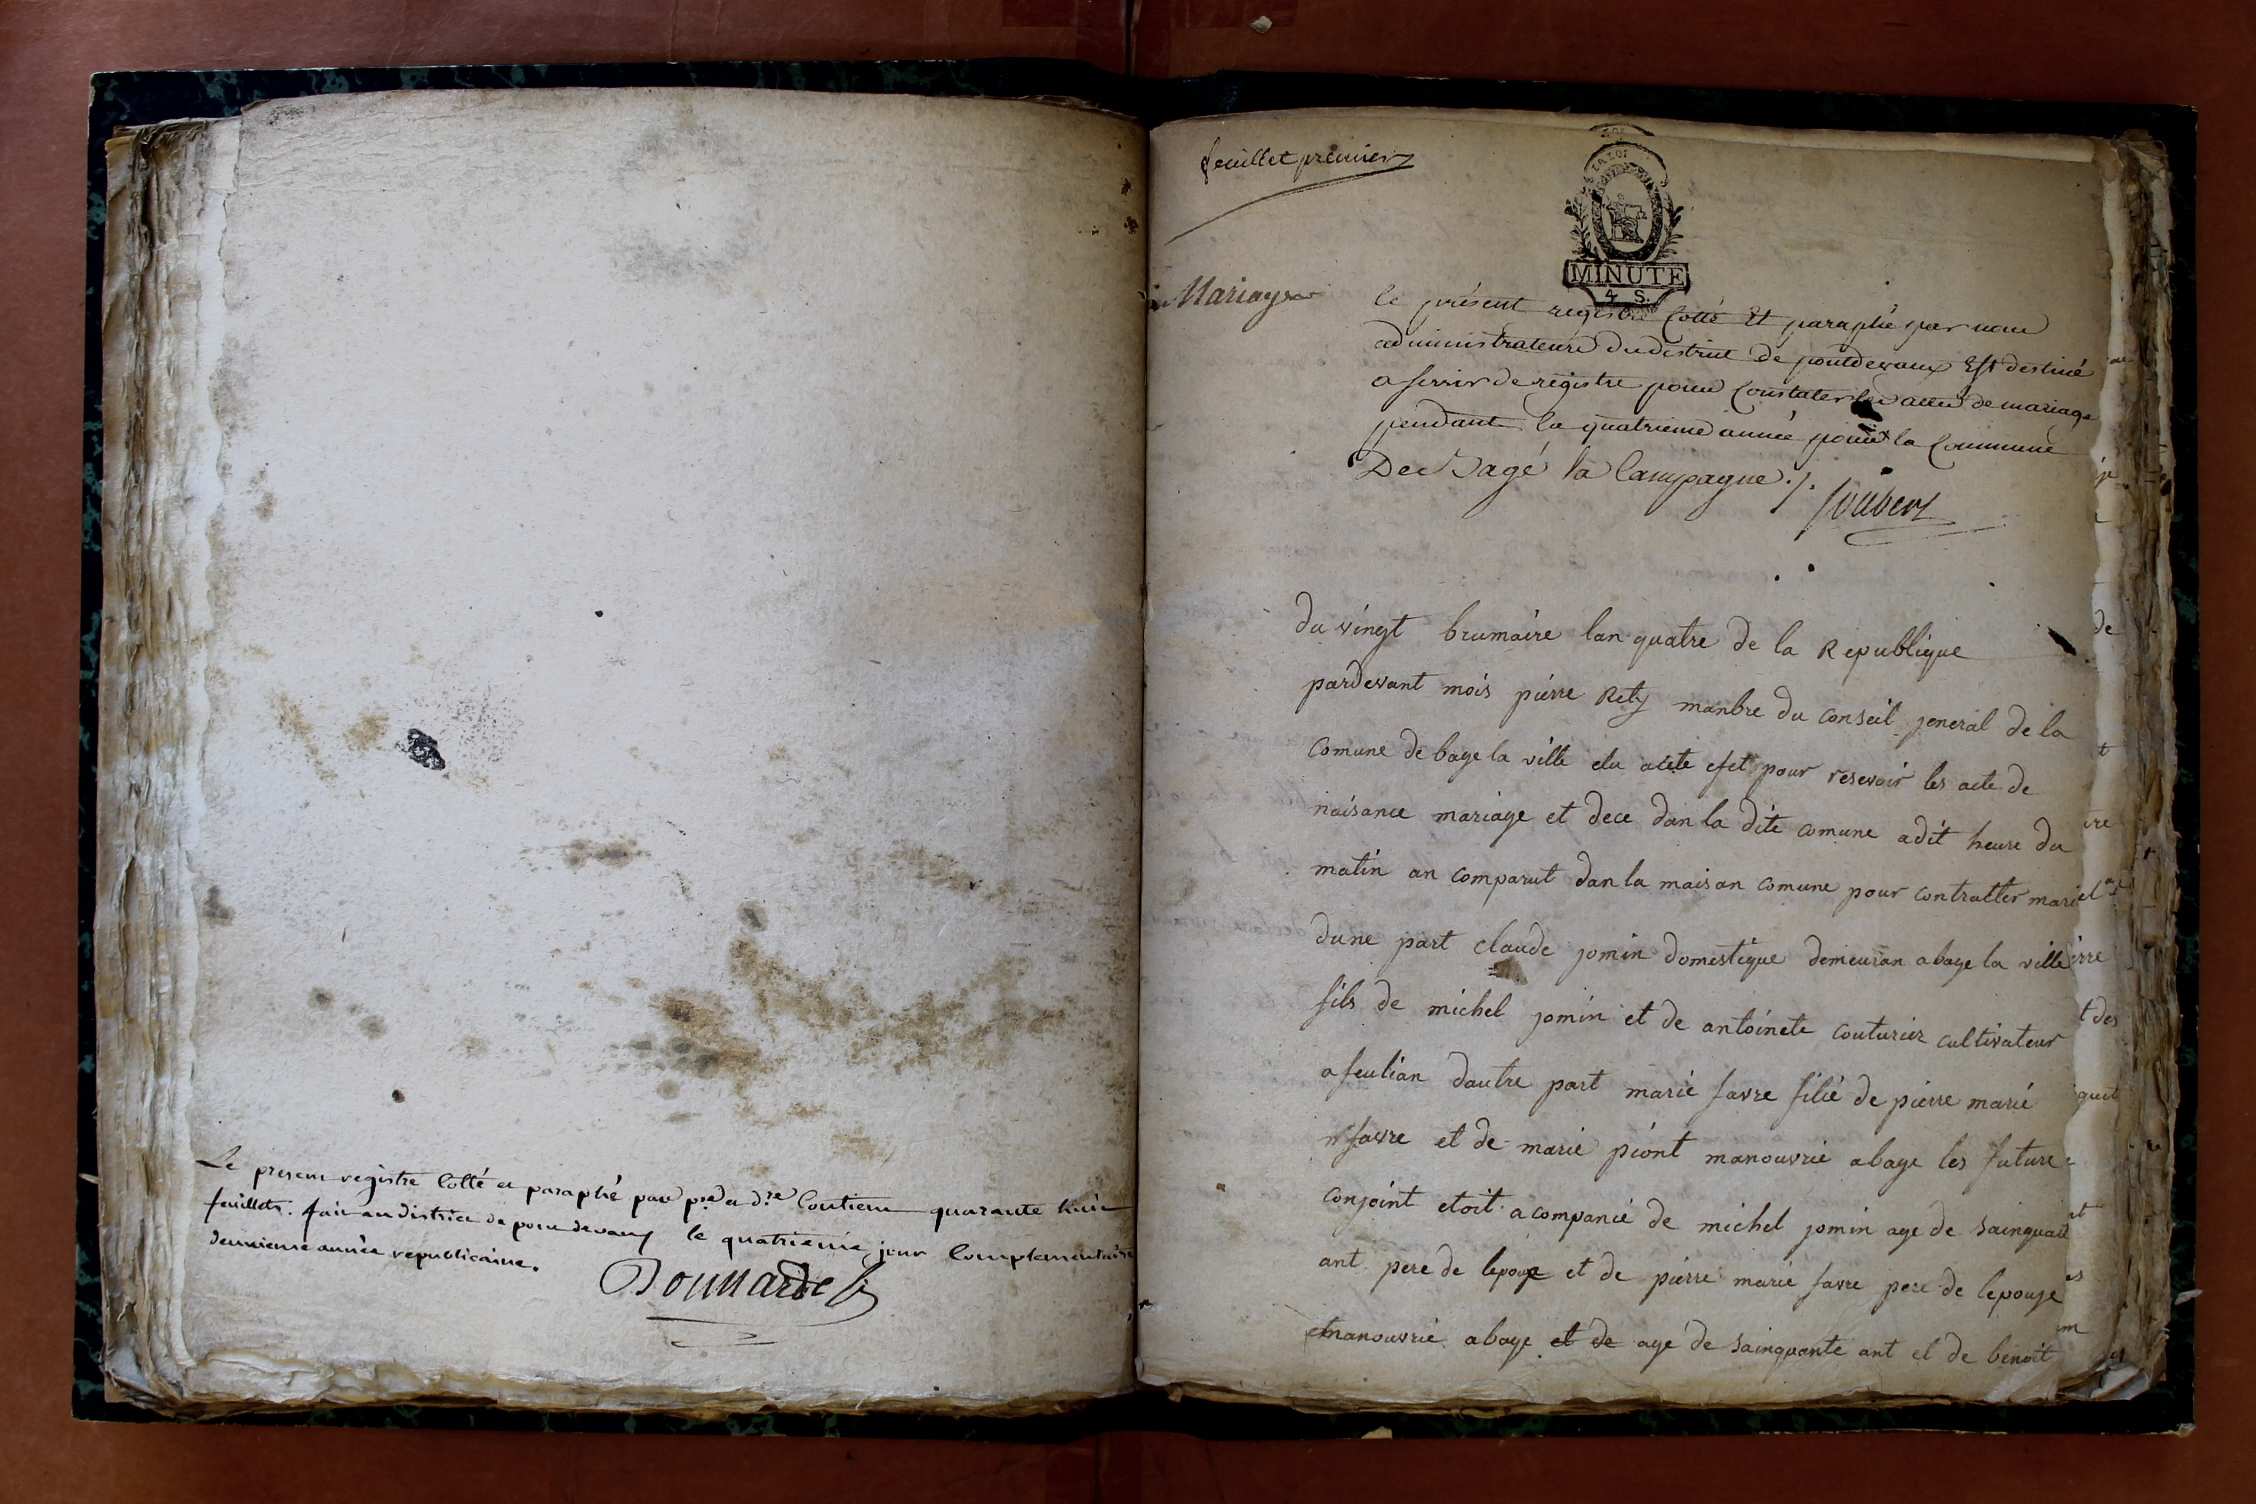 Le present registre Cotté et paraphé par pre. et dre. Contient quarante huit
feuillets. fait au district de pont devaux le quatrieme jour Complementaire
deuxieme année republicaine.
feuillet premier
LA LOI
MINUTE
4 S.
Mariages
le présent registre Cotté Et paraphé par nous
administrateurs du district de pontdevaux Est destiné
a servir de registre pour Constater les actes de mariage
pendant la quatrieme année pour la Commune
De Bagé la Campagne ./.
Joubert
du vingt brumaire lan quatre de la Republique
pardevant mois pierre Rety manbre du conseil jeneral de la
comune de bage la ville elu a cete efet pour resevoir les acte de
naisance mariage et dece dan la dite comune a dit heure du
matin an comparut dan la maison comune pour contratter mari
dune part claude jomin domestique demeuran a bage la ville
fils de michel jomin et de antoinete couturier cultivateur
a feulian dautre part marie favre filie de pierre marie
favre et de marie piont manouvrie a bage les future
conjoint etoit acompanié de michel jomin age de sainquant
ant pere de lepoux et de pierre marie favre pere de lepouze
manouvrie a bage et de age de sainquante ant et de benoit